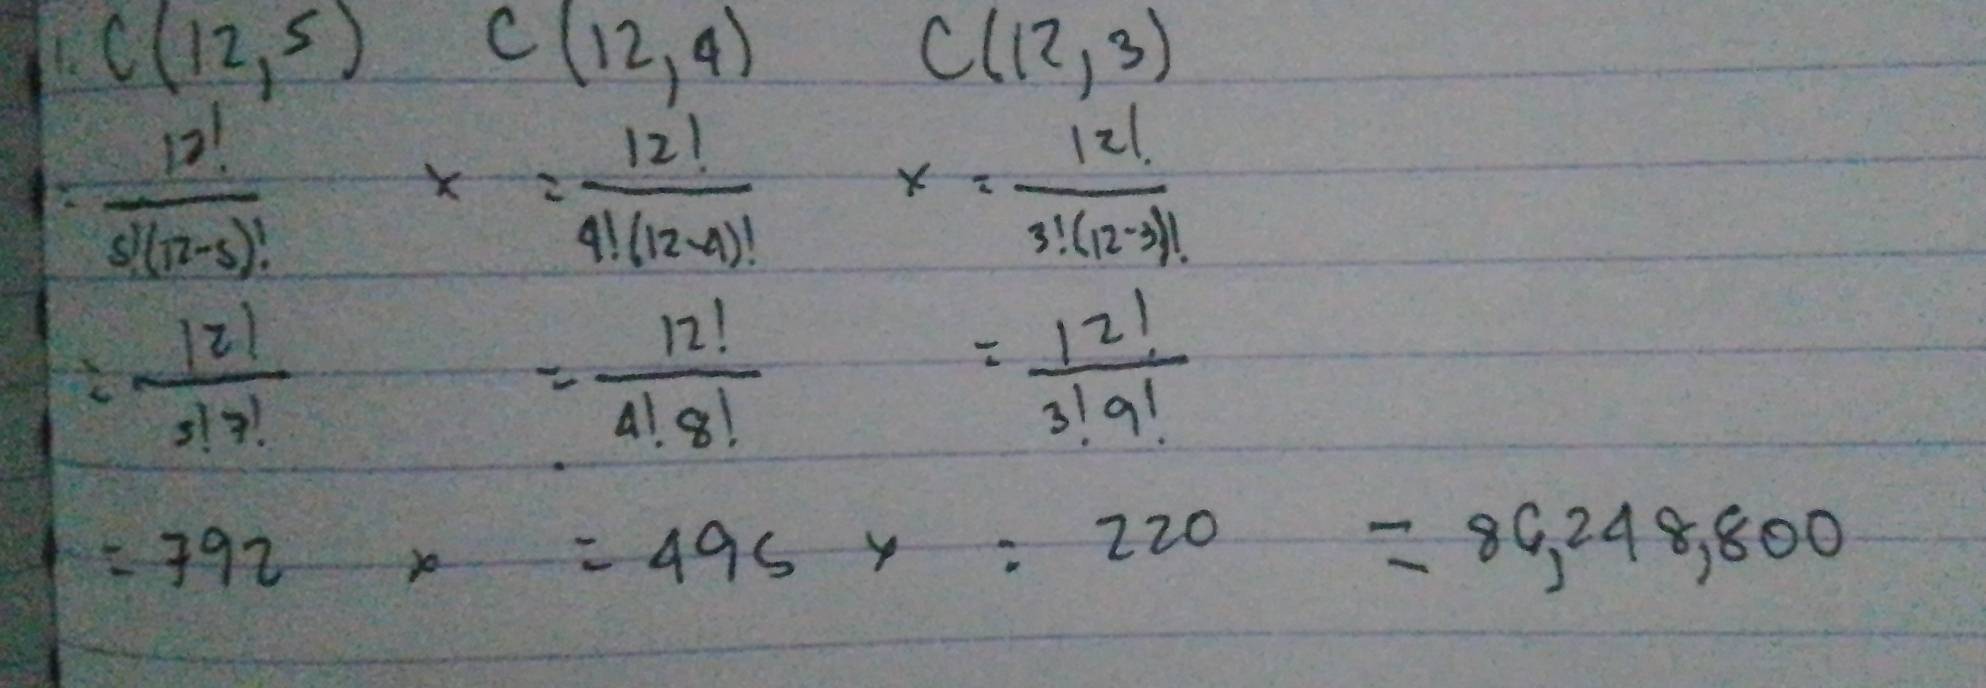 1. C(12,5) C(12,4) C(12,3)
= 12!/5!(12-5)! × = 12!/4!(12-4)! × = 12!/3!(12-3)!
= 12!/5!7! = 12!/4!8! = 12!/3!9!
= 792 × = 495 × = 220 = 86,248,800